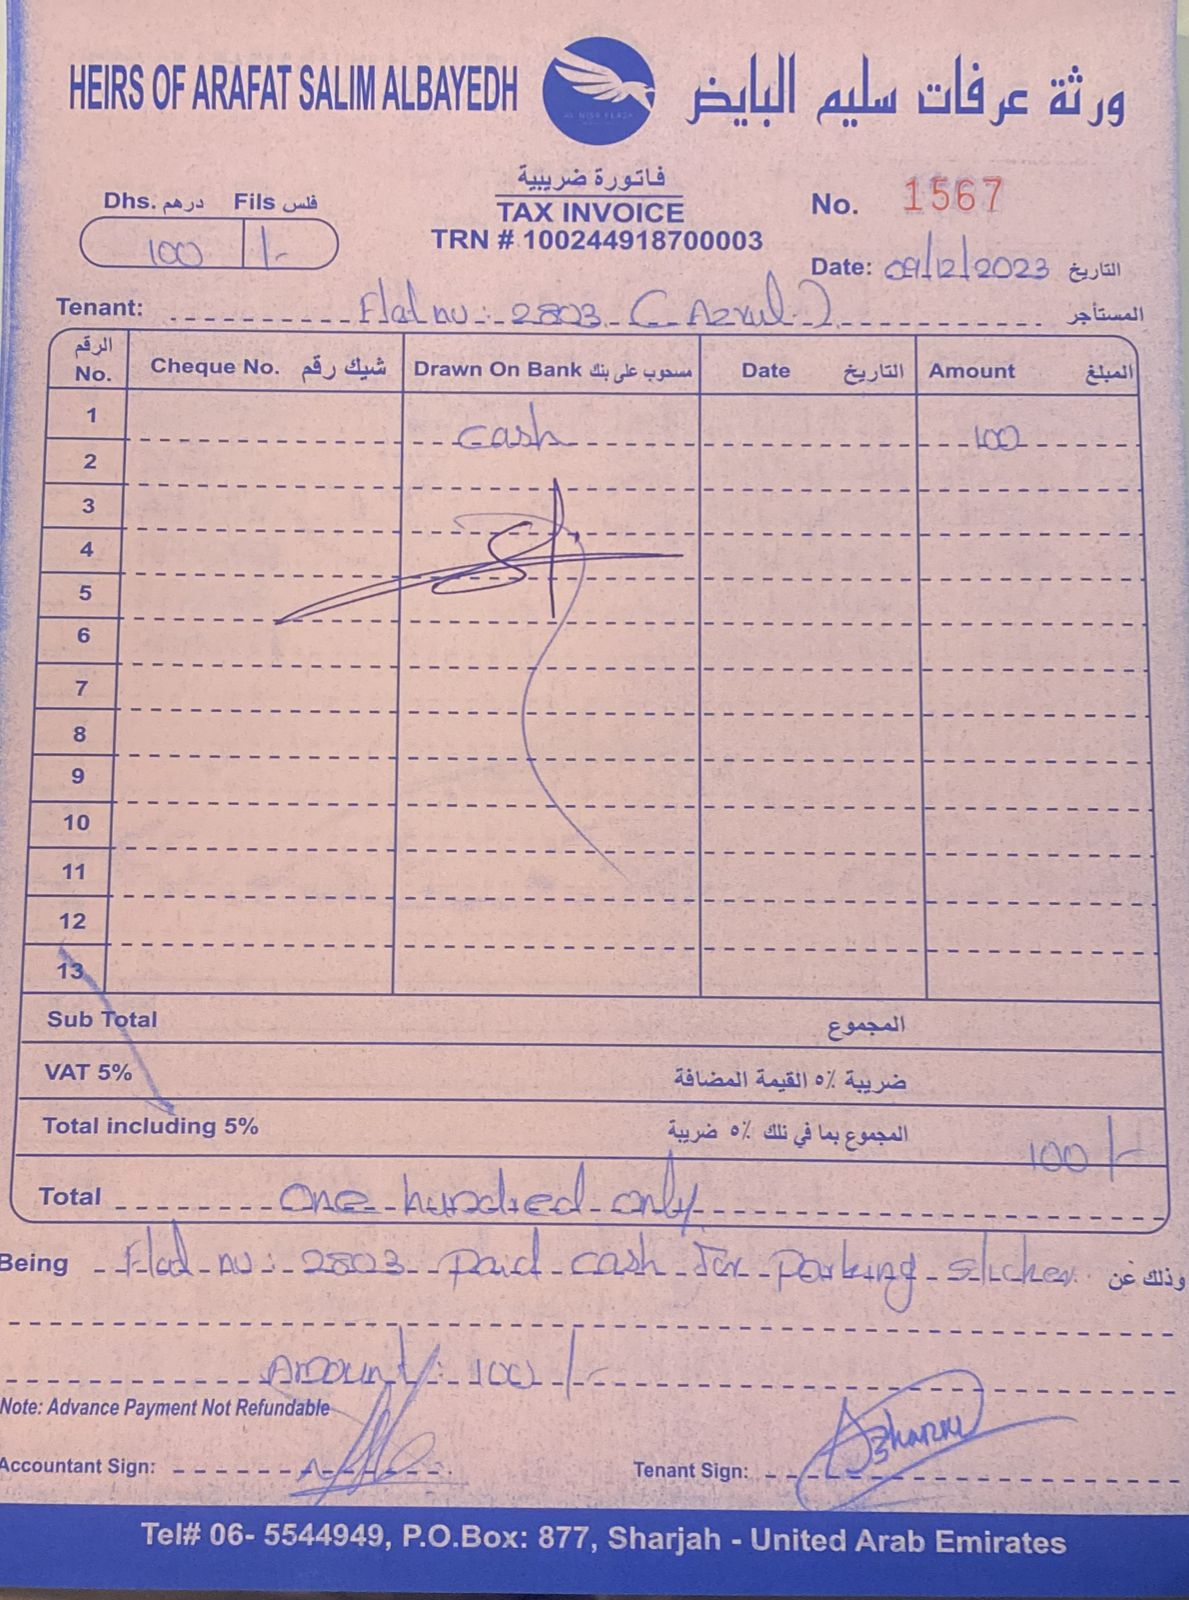 HEIRS OF ARAFAT SALIM ALBAYEDH
ورثة عرفات سليم البايض
AL NISR PLAZA
فاتورة ضريبية
TAX INVOICE
TRN # 100244918700003
Dhs. درهم Fils فلس
100 /-
No. 1567
Date: 09/12/2023 التاريخ
Tenant: Flat no: 2803 (Azrul) المستأجر
الرقم No. Cheque No. شيك رقم Drawn On Bank مسحوب على بنك Date التاريخ Amount المبلغ
1 cash 100
2
3
4
5
6
7
8
9
10
11
12
13
Sub Total المجموع
VAT 5% ضريبة ٥٪ القيمة المضافة
Total including 5% المجموع بما في تلك ٥٪ ضريبة 100/-
Total one hundred only
Being Flat no: 2803 paid cash for parking sticker وذلك عن
Amount: 100/-
Note: Advance Payment Not Refundable
Accountant Sign: Tenant Sign:
Tel# 06- 5544949, P.O.Box: 877, Sharjah - United Arab Emirates